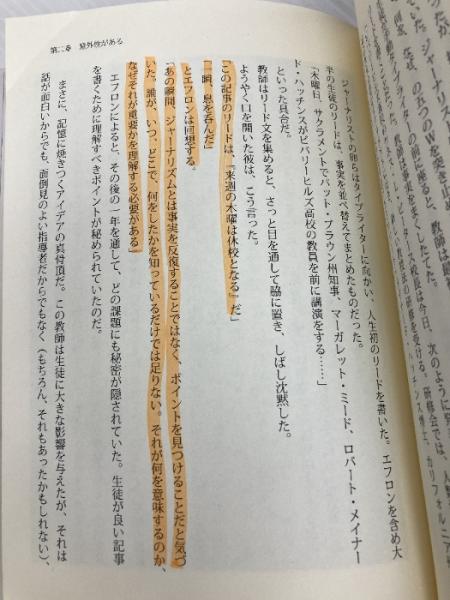 第二章 意外性がある
ジャーナリストの卵らはタイプライターに向かい、人生初のリードを書いた。エフロンを含め大
半の生徒のリードは、事実を並べ替えてまとめたものだった。
「木曜日、サクラメントでパット・ブラウン州知事、マーガレット・ミード、ロバート・メイナー
ド・ハッチンスがビバリーヒルズ高校の教員を前に講演をする……」
といった具合だ。
教師はリード文を集めると、さっと目を通して脇に置き、しばし沈黙した。
ようやく口を開いた彼は、こう言った。
「この記事のリードは、『来週の木曜は休校となる』だ」
「一瞬、息を呑んだ」
とエフロンは回想する。
「あの瞬間、ジャーナリズムとは事実を反復することではなく、ポイントを見つけることだと気づ
いた。誰が、いつ、どこで、何をしたかを知っているだけでは足りない。それが何を意味するのか、
なぜそれが重要かを理解する必要がある」
エフロンによると、その後の一年を通して、どの課題にも秘密が隠されていた。生徒が良い記事
を書くために理解すべきポイントが秘められていたのだ。
まさに、記憶に焼きつくアイデアの真骨頂だ。この教師は生徒に大きな影響を与えたが、それは
話が面白いからでも、面倒見のよい指導者だからでもなく（もちろん、それもあったかもしれない）、